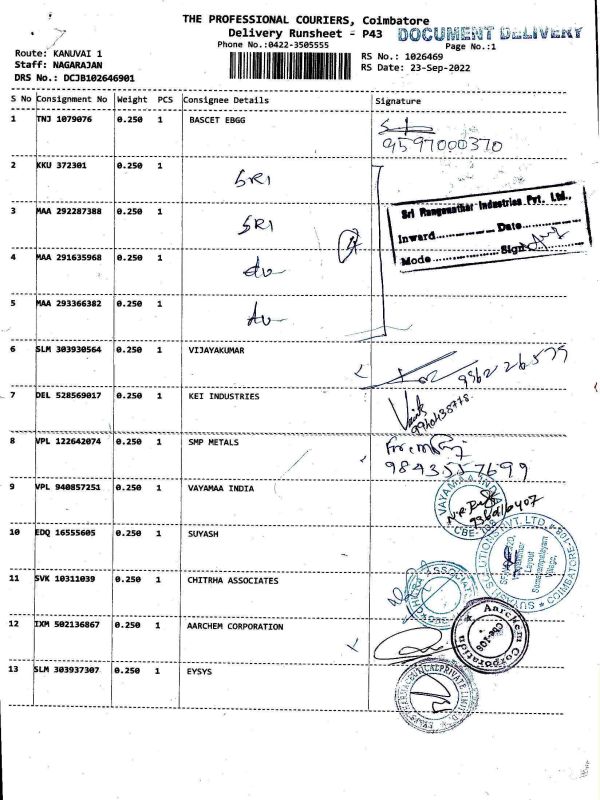 THE PROFESSIONAL COURIERS, Coimbatore
Delivery Runsheet - P43 DOCUMENT DELIVERY
Phone No.:0422-3505555 Page No.:1
Route: KANUVAI 1 RS No.: 1026469
Staff: NAGARAJAN RS Date: 23-Sep-2022
DRS No.: DCJB102646901
S No Consignment No Weight PCS Consignee Details Signature
1 TNJ 1079076 0.250 1 BASCET EBGG
9597000370
2 KKU 372301 0.250 1 SRI
3 MAA 292287388 0.250 1 SRI
Sri Ranganathar Industries Pvt. Ltd.,
Inward Date
Mode Sign
4 MAA 291635968 0.250 1
5 MAA 293366382 0.250 1
6 SLM 303930564 0.250 1 VIJAYAKUMAR
7 DEL 528569017 0.250 1 KEI INDUSTRIES
8 VPL 122642074 0.250 1 SMP METALS
9843557699
9 VPL 940857251 0.250 1 VAYAMAA INDIA
VAYAMAA INDIA
CBE-108
10 EDQ 16555605 0.250 1 SUYASH
COIMBATORE-108
11 SVK 10311039 0.250 1 CHITRHA ASSOCIATES
12 IXM 502136867 0.250 1 AARCHEM CORPORATION
Aarchem Corporation
Cbe-108
13 SLM 303937307 0.250 1 EYSYS